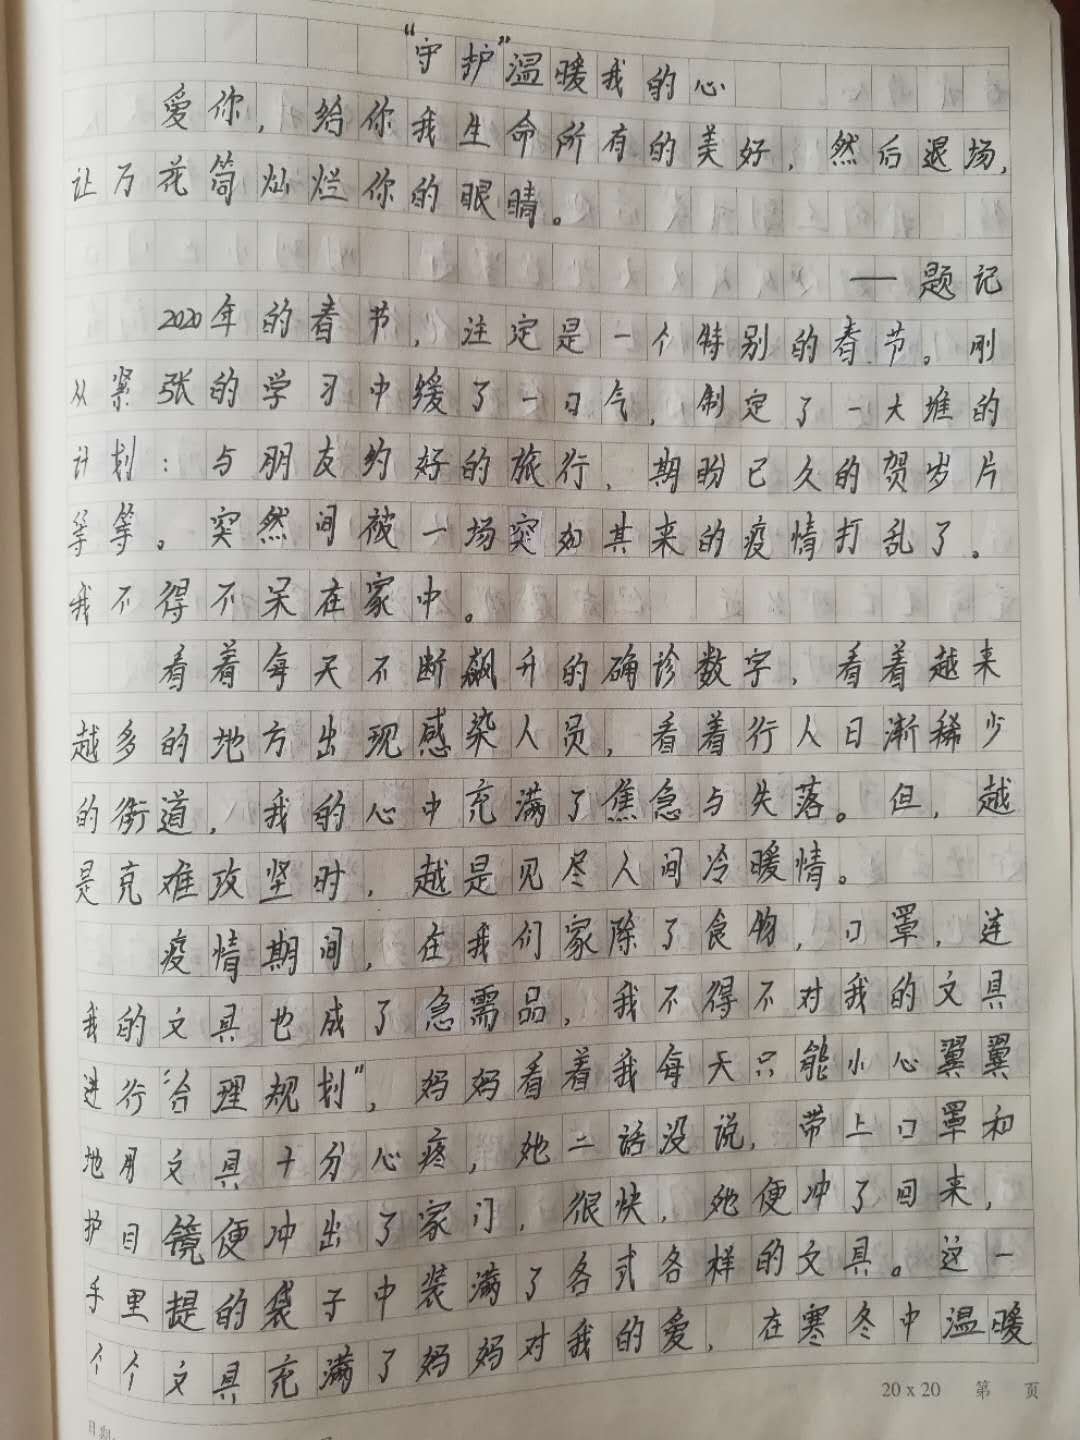 “守护”温暖我的心
爱你，给你我生命所有的美好，然后退场，
让万花筒灿烂你的眼睛。
——题记
2020年的春节，注定是一个特别的春节。刚
从紧张的学习中缓了一口气，制定了一大堆的
计划：与朋友约好的旅行，期盼已久的贺岁片
等等。突然间被一场突如其来的疫情打乱了。
我不得不呆在家中。
看着每天不断飙升的确诊数字，看着越来
越多的地方出现感染人员，看着行人日渐稀少
的街道，我的心中充满了焦急与失落。但，越
是克难攻坚时，越是见尽人间冷暖情。
疫情期间，在我们家除了食物，口罩，连
我的文具也成了急需品，我不得不对我的文具
进行“合理规划”，妈妈看着我每天只能小心翼翼
地用文具十分心疼，她二话没说，带上口罩和
护目镜便冲出了家门，很快，她便冲了回来，
手里提的袋子中装满了各式各样的文具。这一
个个文具充满了妈妈对我的爱，在寒冬中温暖
20 x 20 第 页